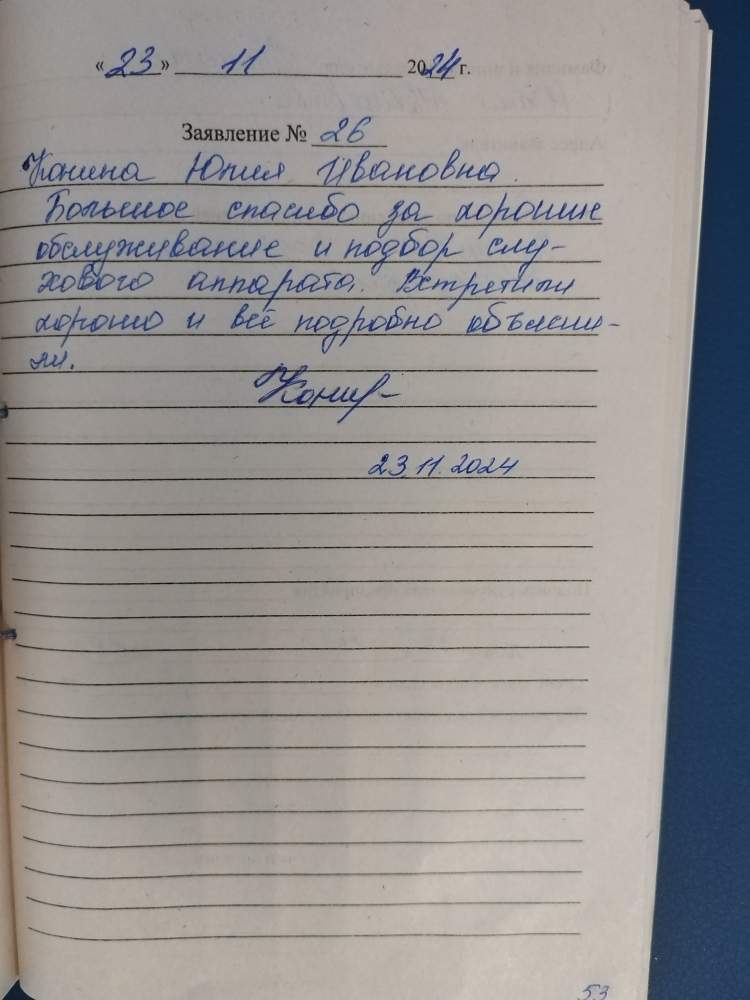 «23» 11 2024 г.
Заявление № 26
Конина Юлия Ивановна.
Большое спасибо за хорошие
обслуживание и подбор слу-
хового аппарата. Встретили
хорошо и всё подробно объясни-
ли.
23.11.2024
53